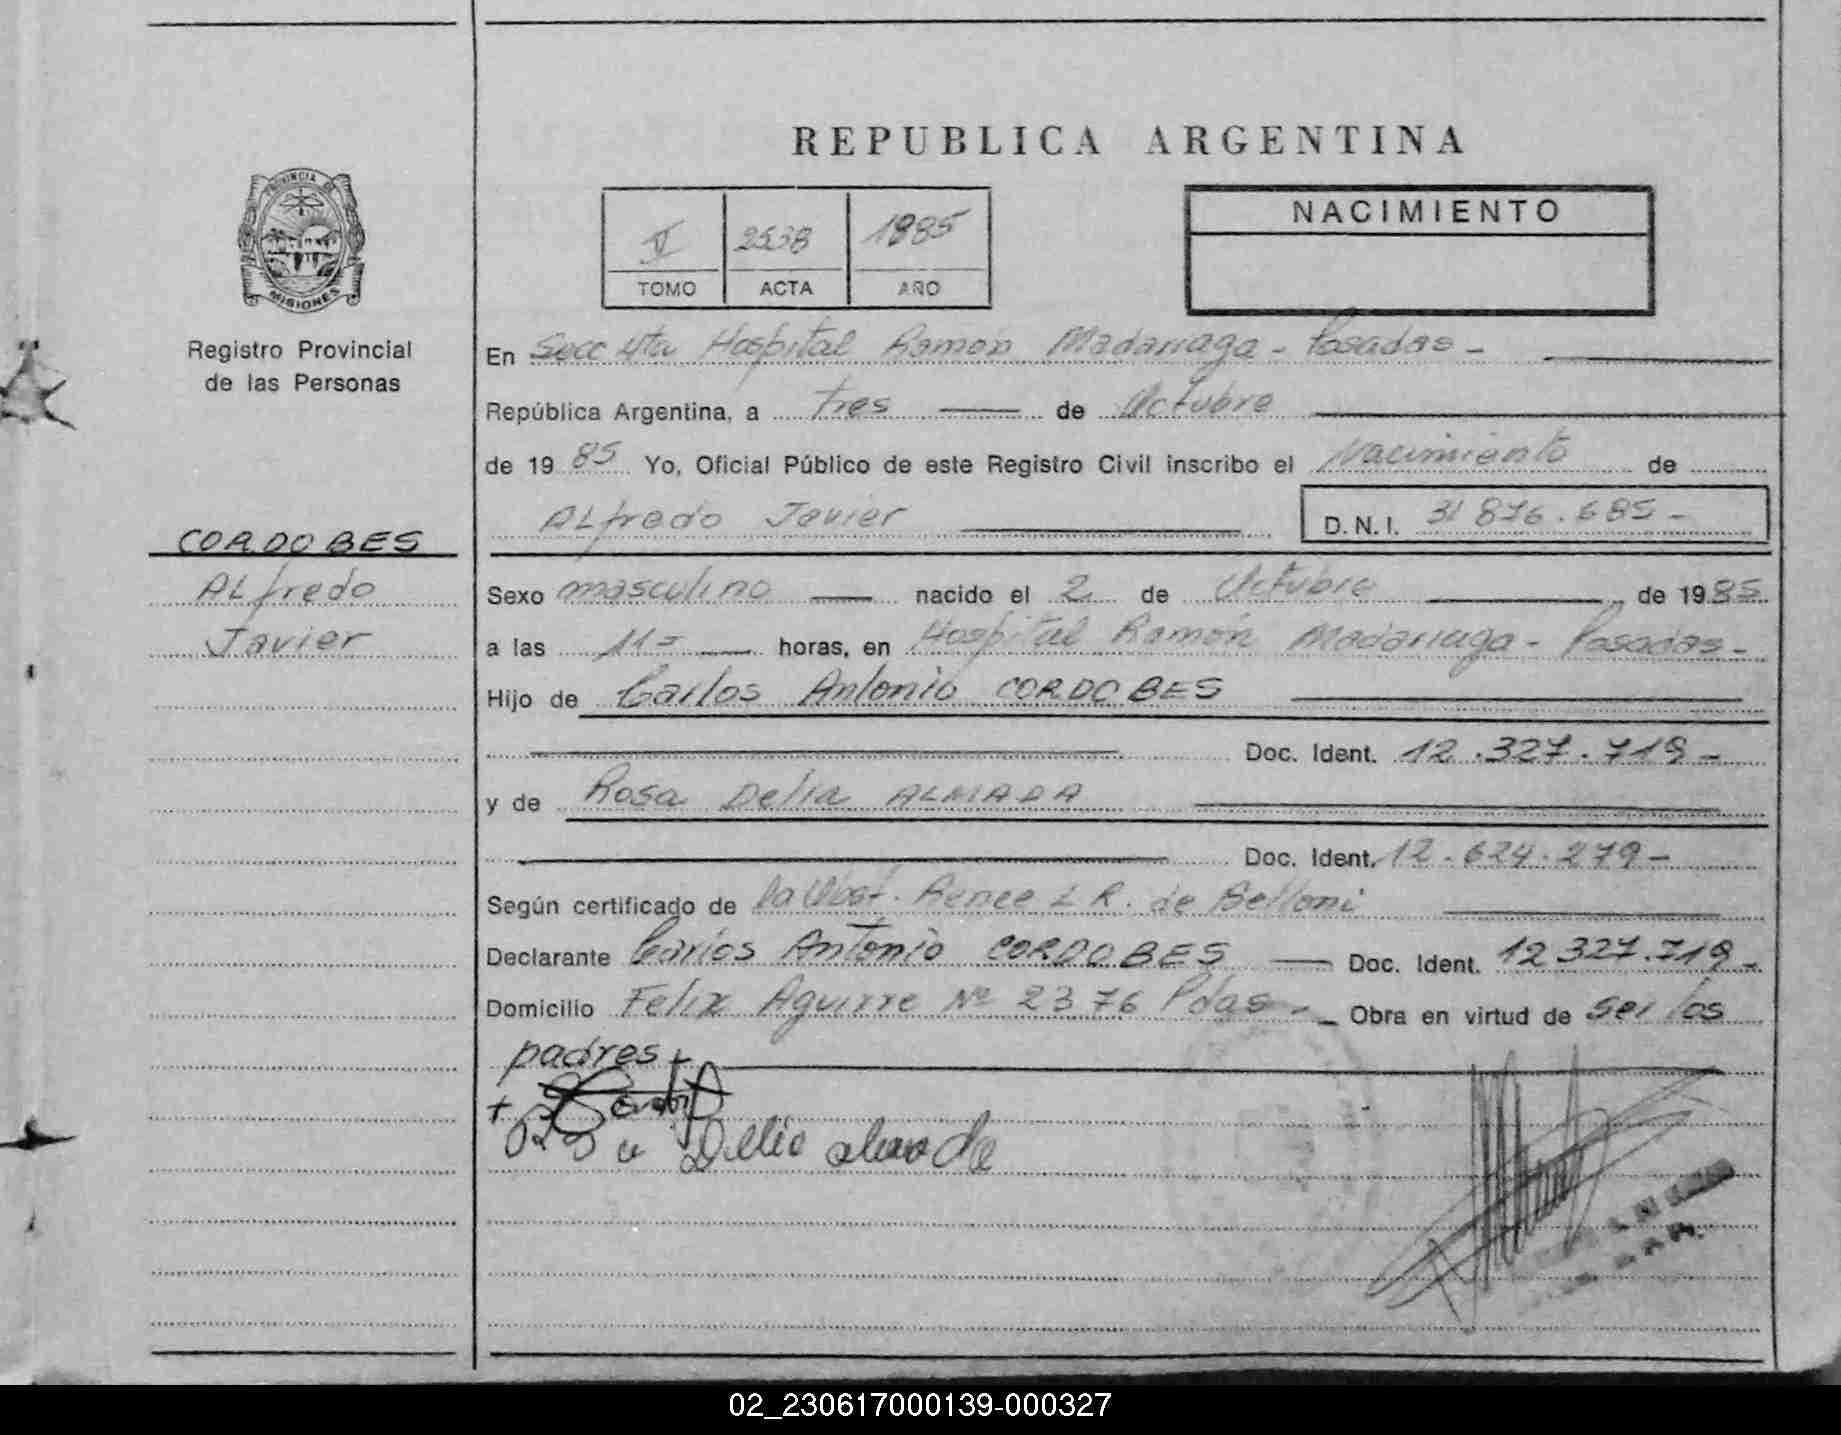 REPUBLICA ARGENTINA
PROVINCIA DE
MISIONES
Registro Provincial
de las Personas
V 2538 1985
TOMO ACTA AÑO
NACIMIENTO
En Secc 4ta Hospital Ramón Madariaga - Posadas -
República Argentina, a tres de Octubre
de 1985 Yo, Oficial Público de este Registro Civil inscribo el Nacimiento de
ALfredo Javier D.N.I. 31 876.685 -
CORDOBES
ALfredo
Javier
Sexo masculino nacido el 2 de Octubre de 1985
a las 11= horas, en Hospital Ramón Madariaga - Posadas -
Hijo de Carlos Antonio CORDOBES
Doc. Ident. 12.327.719 -
y de Rosa Delia ALMADA
Doc. Ident. 12.624.279 -
Según certificado de la Obst. Renee L R. de Belloni
Declarante Carlos Antonio CORDOBES Doc. Ident. 12 327.719 -
Domicilio Felix Aguirre Nº 2376 Pdas - Obra en virtud de ser los
padres
Delia
02_230617000139-000327